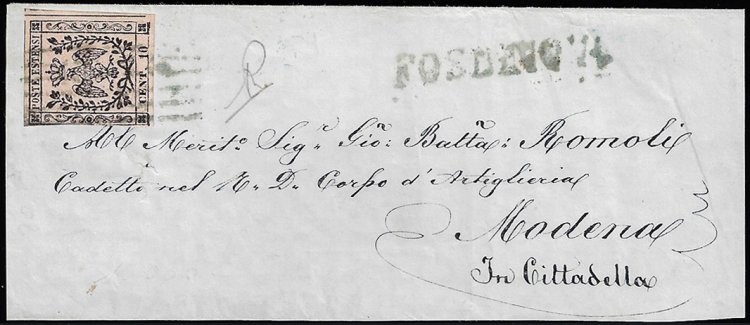 POSTE ESTENSI
CENT. 10
R
FOSDINOVO
Al Merito. Sigr. Gio: Batta: Romoli
Cadetto nel R. D. Corpo d'Artiglieria
Modena
In Cittadella